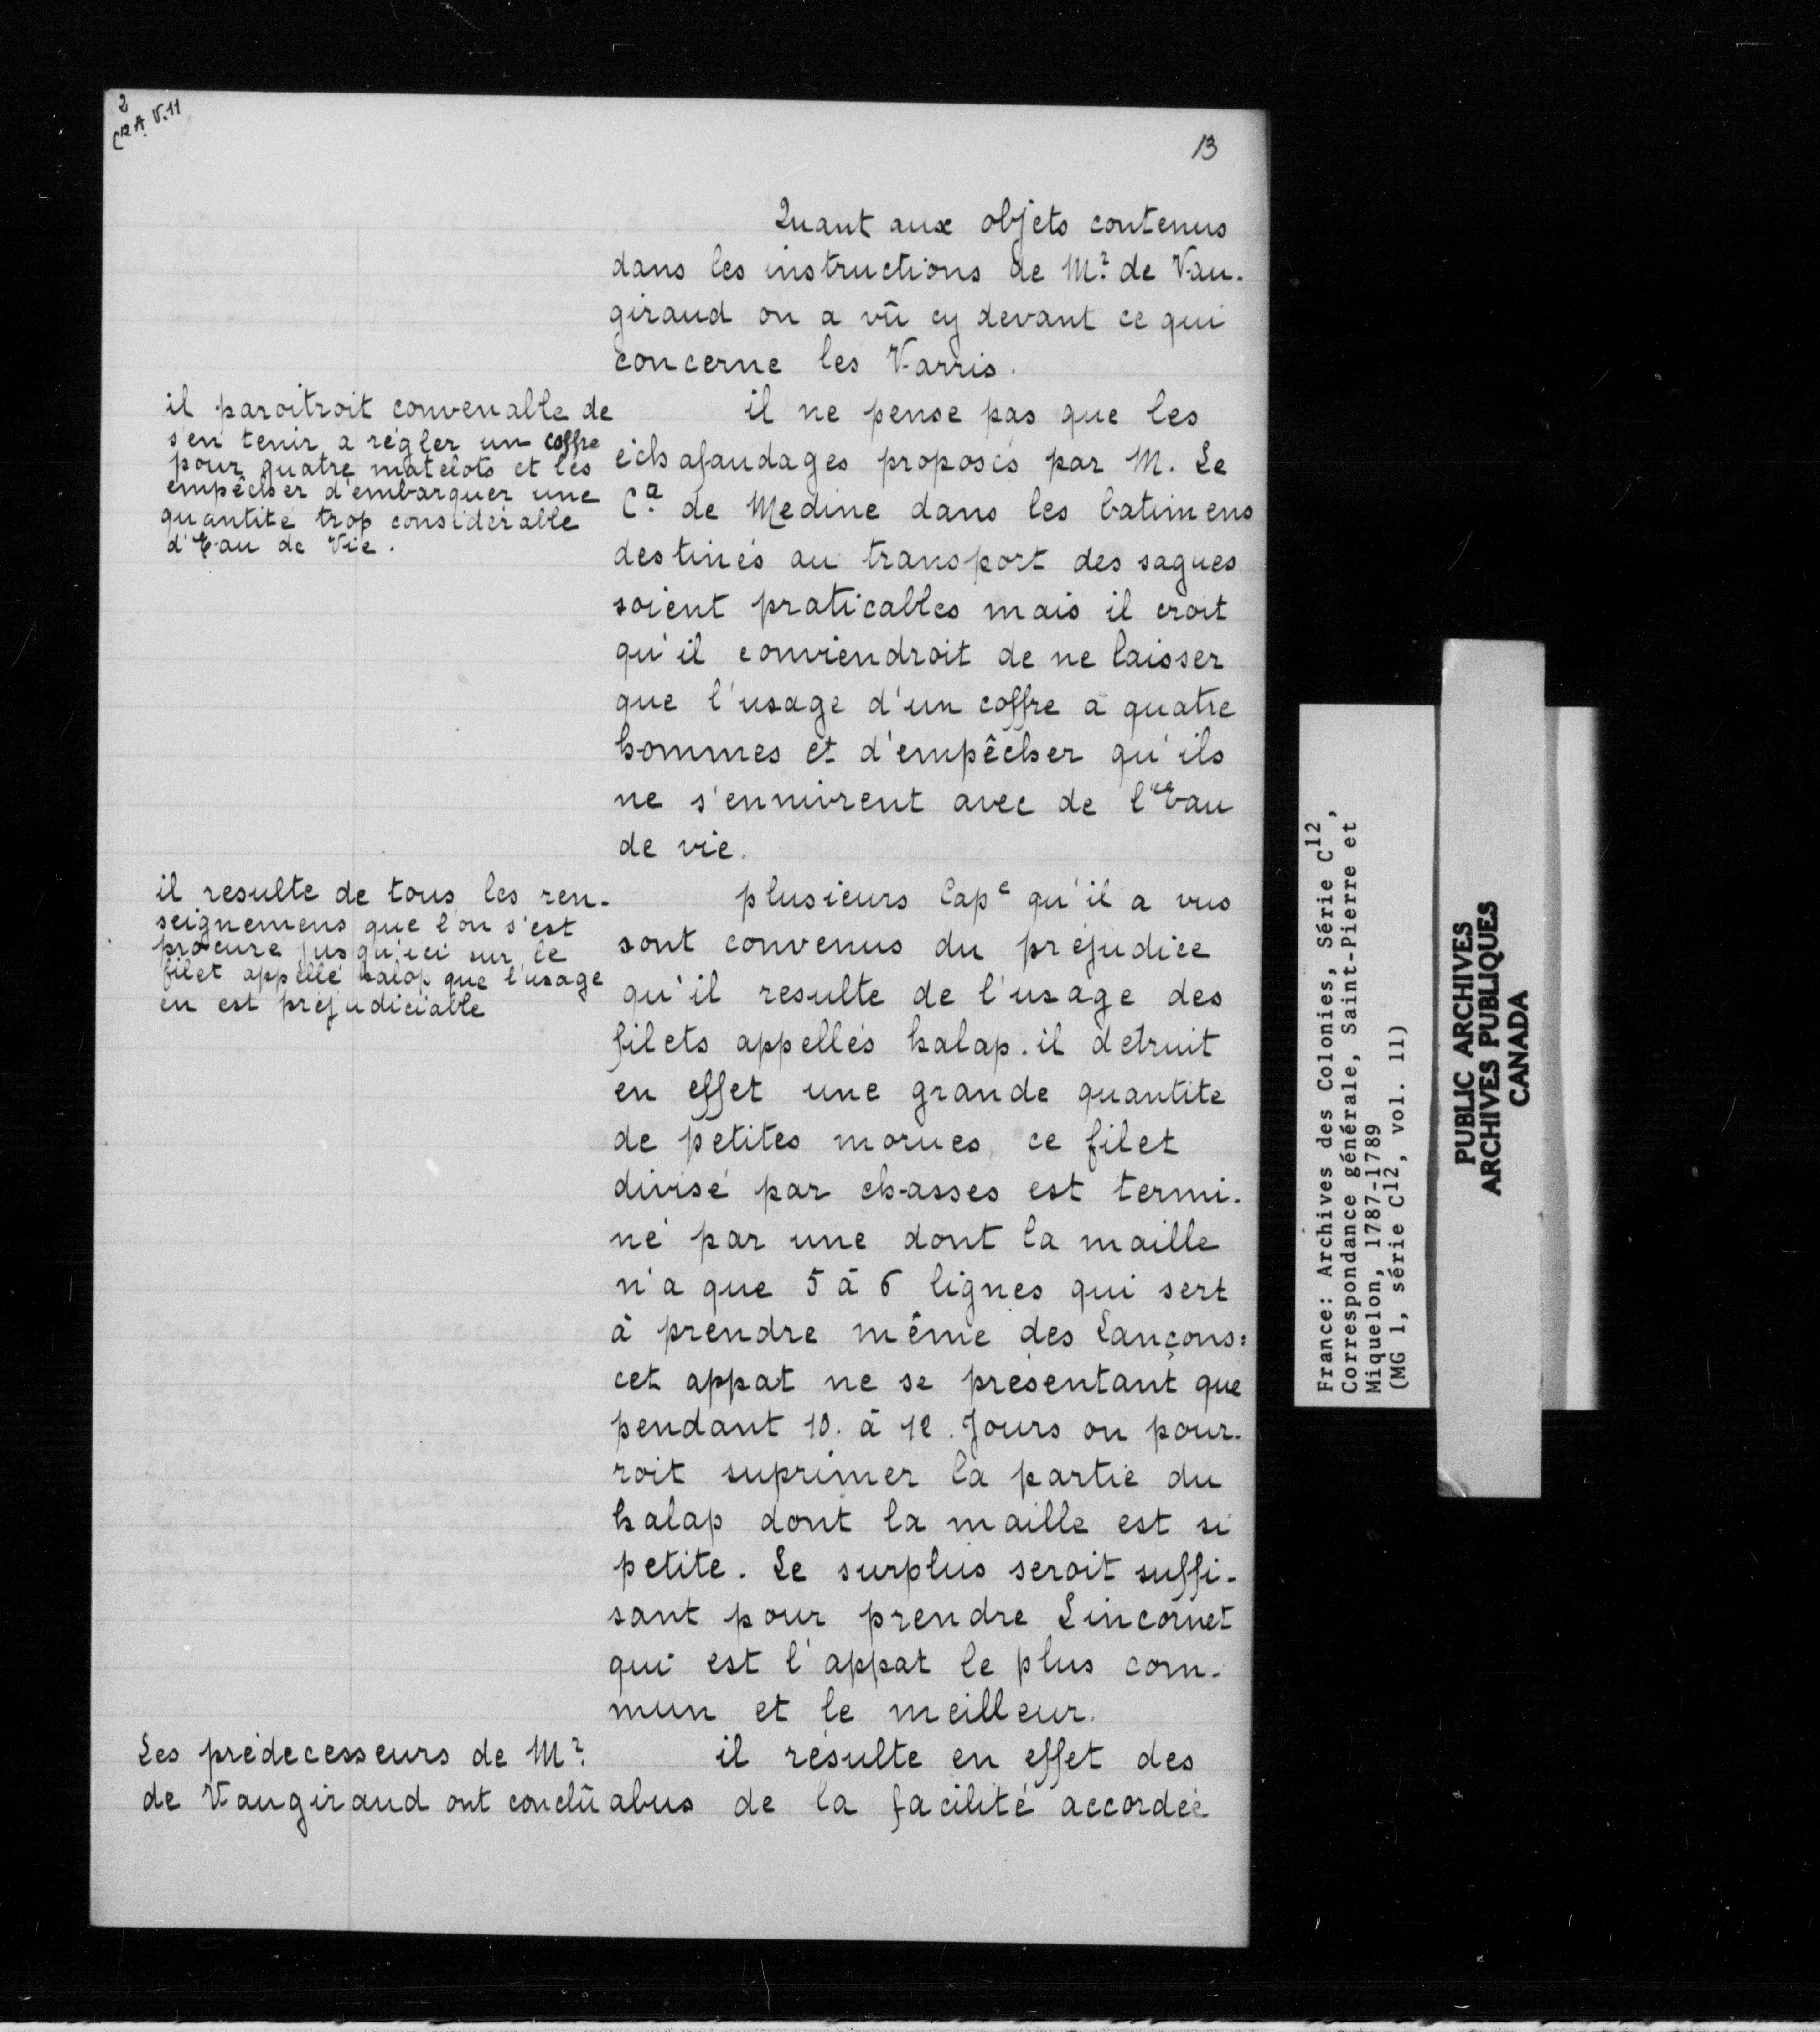 2
C12 A. V. 11
13
Quant aux objets contenus
dans les instructions de Mr. de Vau-
giraud on a vû cy devant ce qui
concerne les Varris.
il paroitroit convenable de
s'en tenir a régler un coffre
pour quatre matelots et les
empêcher d'embarquer une
quantité trop considérable
d'Eau de Vie.
il ne pense pas que les
échafaudages proposés par M. Le
Ca. de Medine dans les batimens
destinés au transport des sagues
soient praticables mais il croit
qu'il conviendroit de ne laisser
que l'usage d'un coffre à quatre
hommes et d'empêcher qu'ils
ne s'ennivrent avec de l'Eau
de vie.
il resulte de tous les ren-
seignemens que l'on s'est
procure jusqu'ici sur le
filet appellé halop que l'usage
en est préjudiciable
plusieurs Cape qu'il a vus
sont convenus du préjudice
qu'il resulte de l'usage des
filets appellés halap. il detruit
en effet une grande quantite
de petites morues, ce filet
divisé par chasses est termi-
né par une dont la maille
n'a que 5 à 6 lignes qui sert
à prendre même des Lançons:
cet appat ne se présentant que
pendant 10. à 12. Jours on pour-
roit suprimer la partie du
halap dont la maille est si
petite. Le surplus seroit suffi-
sant pour prendre Lincornet
qui est l'appat le plus com-
mun et le meilleur.
Les prédecesseurs de Mr.
de Vaugiraud ont conclû
il résulte en effet des
abus de la facilité accordée
France: Archives des Colonies, Série C12,
Correspondance générale, Saint-Pierre et
Miquelon, 1787-1789
(MG 1, série C12, vol. 11)
PUBLIC ARCHIVES
ARCHIVES PUBLIQUES
CANADA